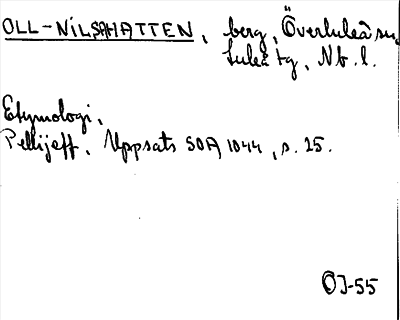 OLL-NILSAHATTEN, berg, Överluleå sn,
Luleå tg, Nb. l.
Etymologi,
Pellijeff, Uppsats SOA 1044, s. 25.
OJ-55